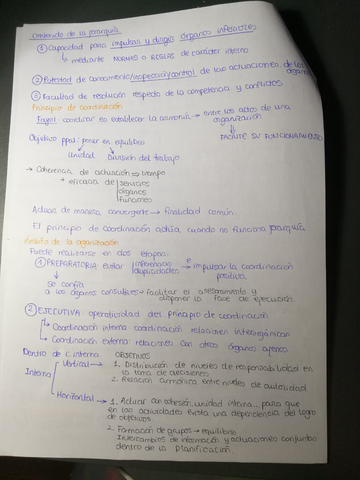 Contenido de la jerarquía
① Capacidad para impulsar y dirigir órganos inferiores
↳ mediante NORMAS o REGLAS de carácter interno
② Potestad de conocimiento/inspección/control de las actuaciones de los órganos
③ Facultad de resolución respecto de la competencia y conflictos
Principio de coordinación
Fayol: coordinar es establecer la armonía → entre los actos de una organización
FACILITE SU FUNCIONAMIENTO
Objetivo ppal: poner en equilibrio
Unidad División del trabajo
→ Coherencia de actuación → tiempo
+ eficacia de servicios
órganos
funciones
Actuar de manera convergente → finalidad común.
El principio de coordinación actúa cuando no funciona jerarquía
Ámbito de la organización
Puede realizarse en dos etapas:
① PREPARATORIA evitar interferencias duplicidades → e impulsar la coordinación positiva.
↳ Se confía
a los órganos consultivos → facilitar el asesoramiento y
disponer la fase de ejecución.
② EJECUTIVA operatividad del principio de coordinación
↳ Coordinación interna coordinación relaciones interorgánicas
↳ Coordinación externa relaciones con otros órganos ajenos
Dentro de C. interna OBJETIVOS
Interna
Vertical → 1. Distribución de niveles de responsabilidad en
la toma de decisiones.
2. Relación armónica entre niveles de autoridad
Horizontal → 1. Actuar con cohesión, unidad interna... para que
en las actividades exista una dependencia del logro
de objetivos
2. Formación de grupos → equilibrio
Intercambios de información y actuaciones conjuntas
dentro de la planificación.